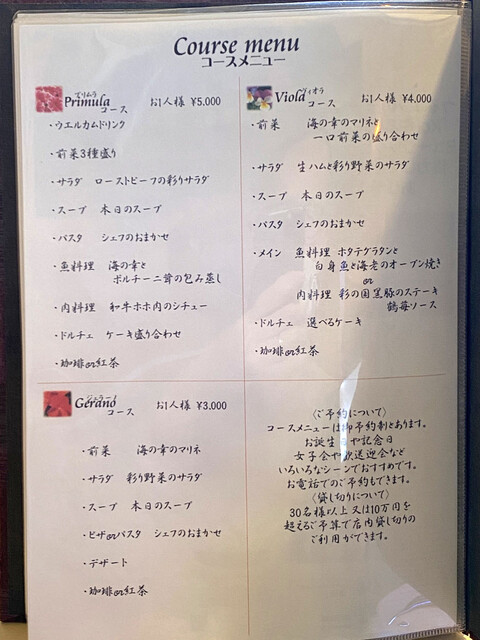 Course menu
コースメニュー
プリムラ
Primula コース お1人様 ¥5,000
・ウエルカムドリンク
・前菜3種盛り
・サラダ ローストビーフの彩りサラダ
・スープ 本日のスープ
・パスタ シェフのおまかせ
・魚料理 海の幸と
ポルチーニ茸の包み蒸し
・肉料理 和牛ホホ肉のシチュー
・ドルチェ ケーキ盛り合わせ
・珈琲or紅茶
ヴィオラ
Viola コース お1人様 ¥4,000
・前菜 海の幸のマリネと
一口前菜の盛り合わせ
・サラダ 生ハムと彩り野菜のサラダ
・スープ 本日のスープ
・パスタ シェフのおまかせ
・メイン 魚料理 ホタテグラタンと
白身魚と海老のオーブン焼き
or
肉料理 彩の国黒豚のステーキ
鶴苺ソース
・ドルチェ 選べるケーキ
・珈琲or紅茶
Gerano コース お1人様 ¥3,000
・前菜 海の幸のマリネ
・サラダ 彩り野菜のサラダ
・スープ 本日のスープ
・ピザorパスタ シェフのおまかせ
・デザート
・珈琲or紅茶
〈ご予約について〉
コースメニューは御予約制となります。
お誕生日や記念日
女子会や歓送迎会など
いろいろなシーンでおすすめです。
お電話でのご予約もできます。
〈貸し切りについて〉
30名様以上又は10万円を
超えるご予算で店内貸し切りの
ご利用ができます。